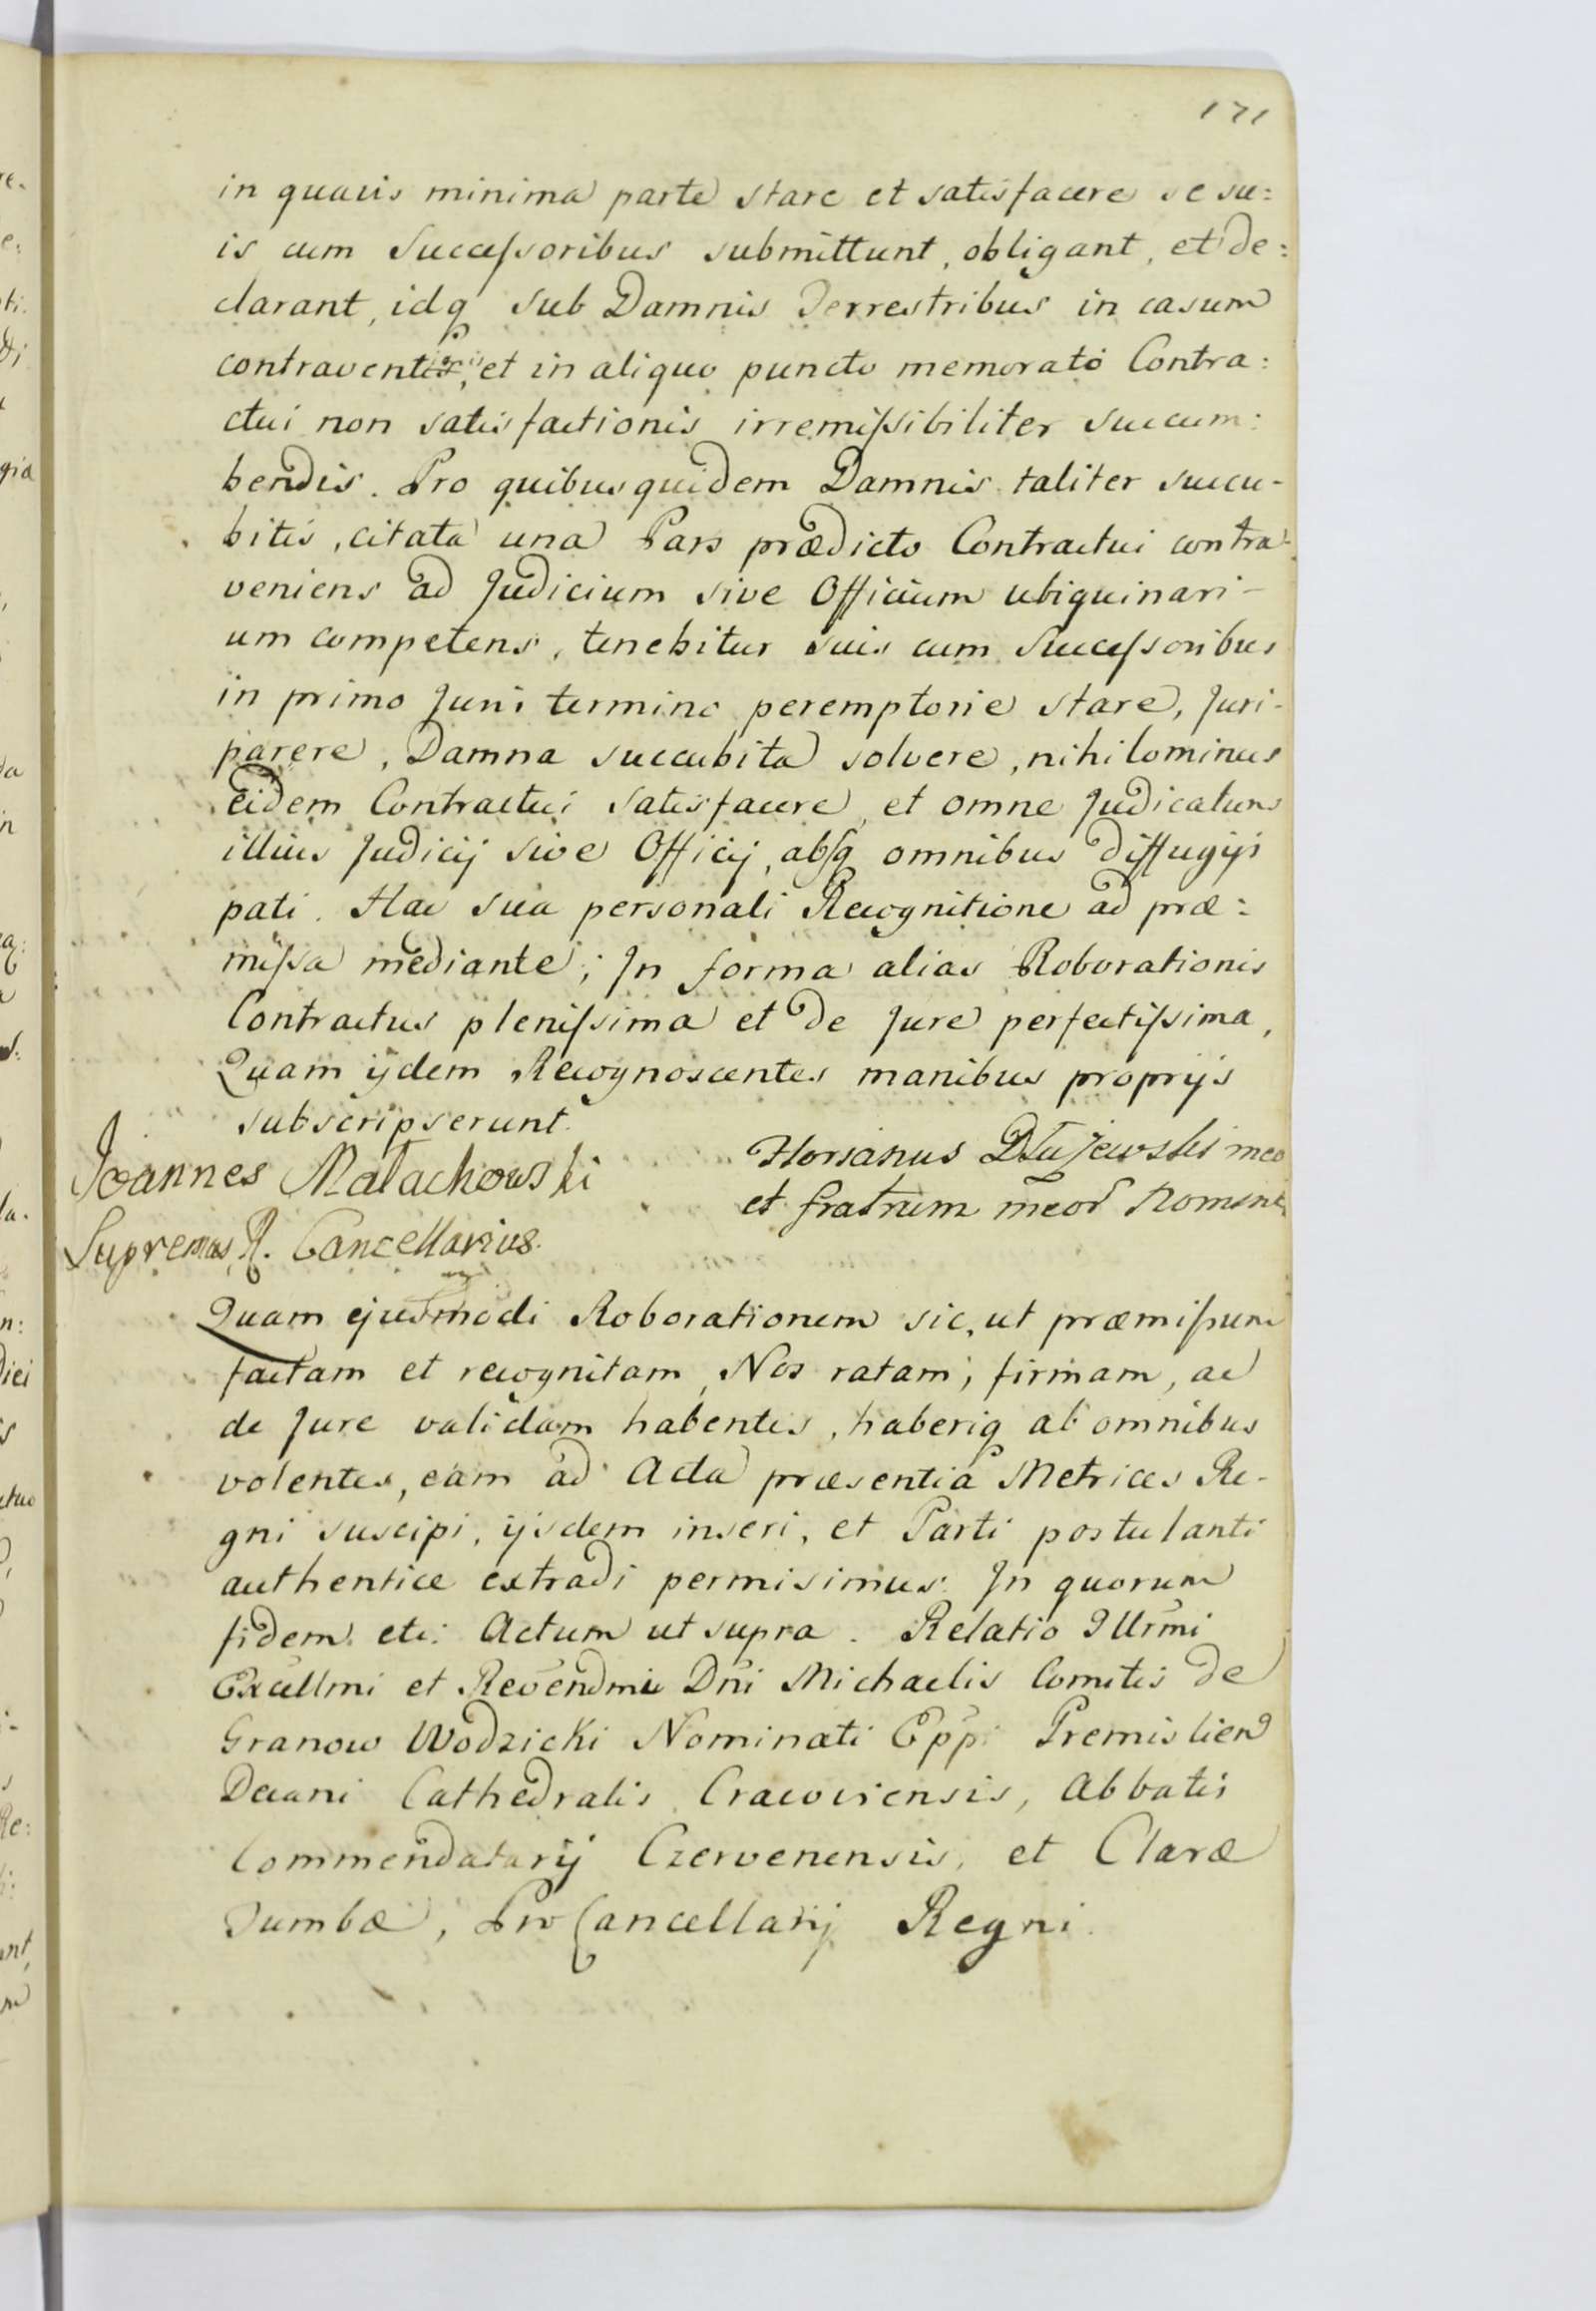 171
in quavis minima parte stare et satisfacere se su:
is cum Successoribus submittunt, obligant, et de:
clarant, idq sub Damnis Terrestribus in casum
contraventionis, et in aliquo puncto memorato Contra:
ctui non satisfactionis irremissibiliter succum:
bendis. Pro quibus quidem Damnis taliter succu-
bitis, citata una Pars prædicto Contractui contra-
veniens ad Judicium sive Officium ubiquinari-
um competens, tenebitur suis cum Successoribus
in primo Juris termino peremptorie stare, Juri-
parere, Damna succubita solvere, nihilominus
eidem Contractui satisfacere, et omne Judicatum
illius Judicij sive Officij, absq omnibus diffugijs
pati. Hac sua personali Recognitione ad præ:
missa mediante; In forma alias Roborationis
Contractus plenissima et de Jure perfectissima,
Quam ijdem Recognoscentes manibus proprijs
subscripserunt.
Joannes Małachowski
Supremus R. Cancellarius.
Florianus Dłużewski meo
et fratrum meor Nomine
Quam ejusmodi Roborationem sic, ut præmissum
factam et recognitam, Nos ratam, firmam, ac
de Jure validam habentes, haberiq ab omnibus
volentes, eam ad Acta præsentia Metrices Re-
gni suscipi, ijsdem inseri, et Parti postulanti
authentice extradi permisimus. In quorum
fidem etc: Actum ut supra. Relatio Illrmi
Excellmi et Revendmi Dni Michaelis Comitis de
Granow Wodzicki Nominati Eppi Premislien
Decani Cathedralis Cracoviensis, Abbatis
Commendatarij Czervenensis, et Claræ
Tumbæ, Pro Cancellarij Regni.